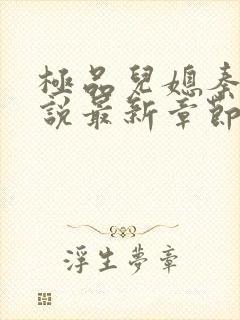 極品兒媳秦
說最新章節
浮生夢章